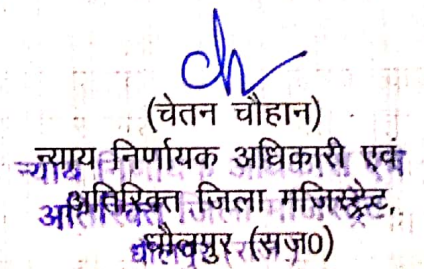 (चेतन चौहान)
न्याय निर्णायक अधिकारी एवं
अतिरिक्त जिला मजिस्ट्रेट,
धौलपुर (राज0)